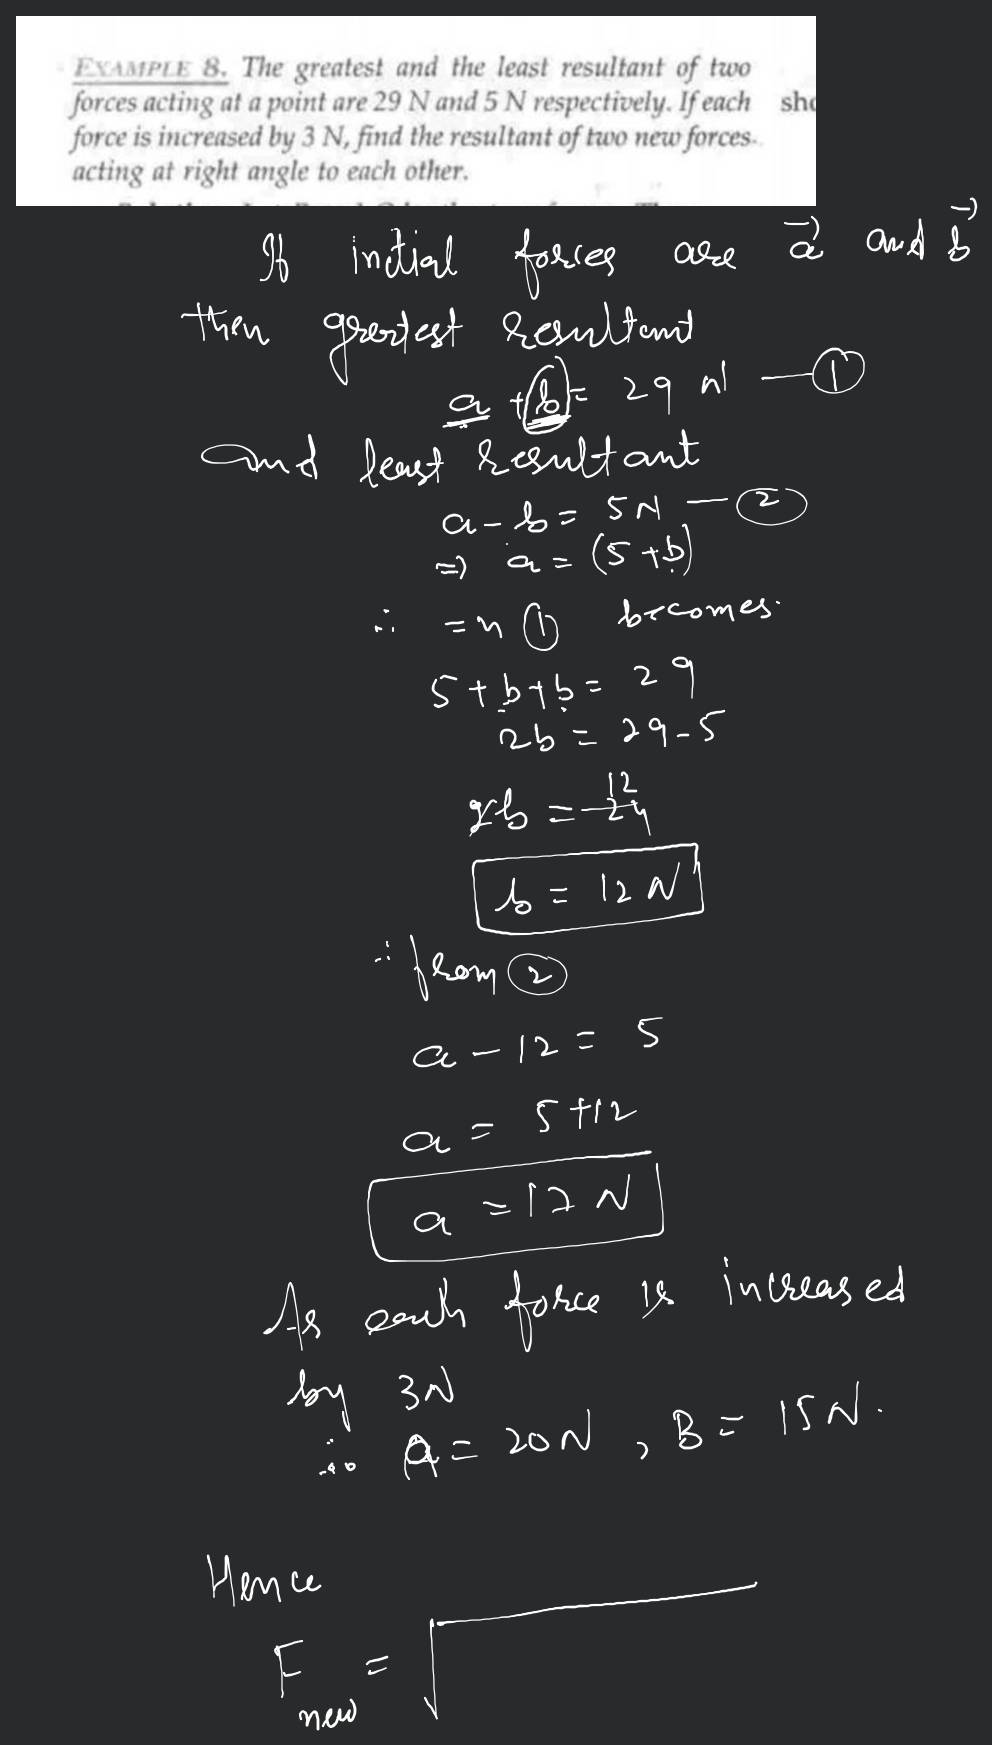 EXAMPLE 8. The greatest and the least resultant of two
forces acting at a point are 29 N and 5 N respectively. If each
force is increased by 3 N, find the resultant of two new forces
acting at right angle to each other.
If initial forces are a⃗ and b⃗
then greatest resultant
a + b = 29 N — ①
and least resultant
a - b = 5N — ②
⇒ a = (5 + b)
∴ =n ① becomes.
5 + b + b = 29
2b = 29 - 5
2b = 24 12
b = 12 N
∴ from ②
a - 12 = 5
a = 5 + 12
a = 17 N
As each force is increased
by 3N
∴ A = 20N , B = 15N.
Hence
F new = √